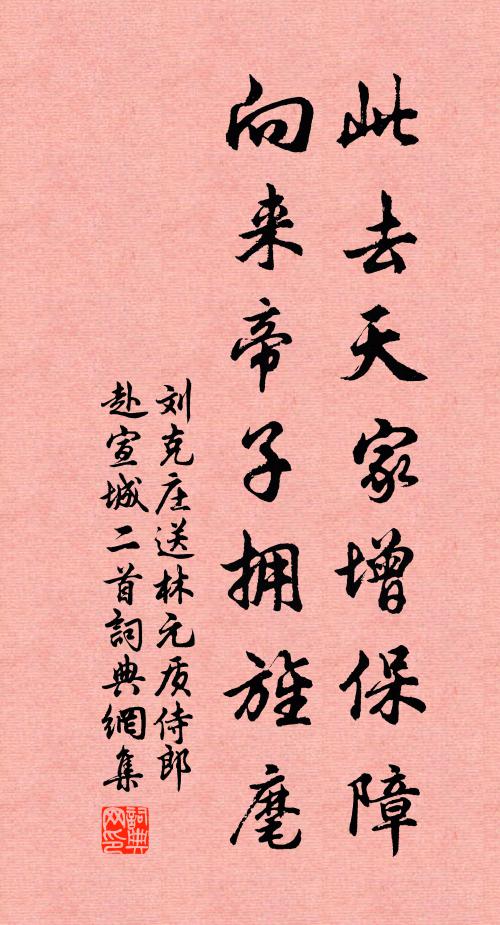 此去天家增保障
向来帝子拥旌麾
刘克庄送林元质侍郎
赴宣城二首詞典網集
詞典
网印